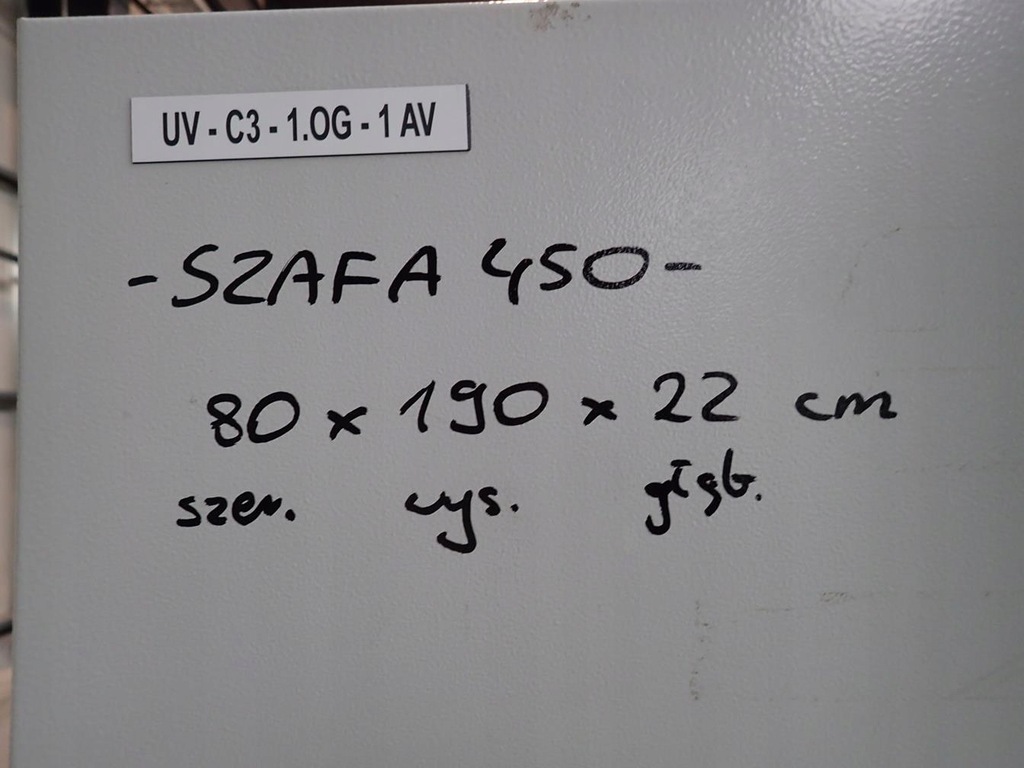 UV - C3 - 1.OG - 1 AV
- SZAFA 450 -
80 x 190 x 22 cm
szer. wys. głęb.